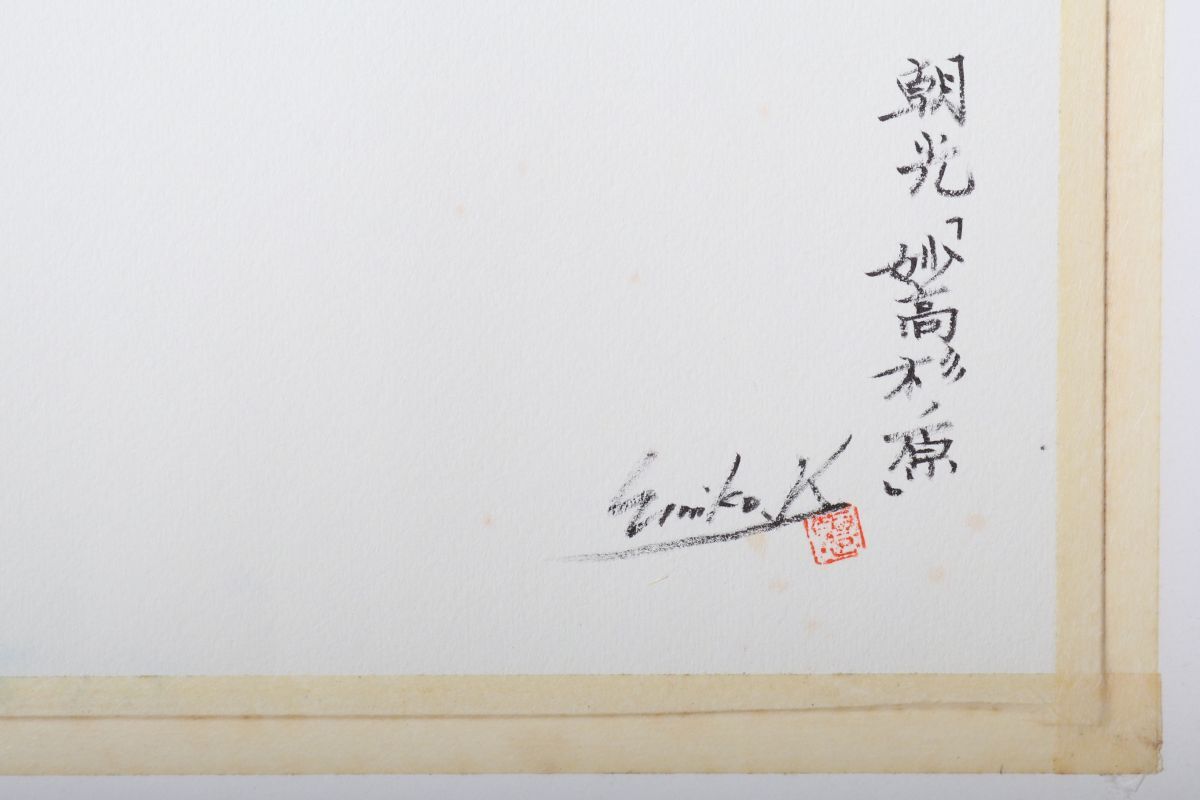 朝光「妙高杉原」
Emiko.K